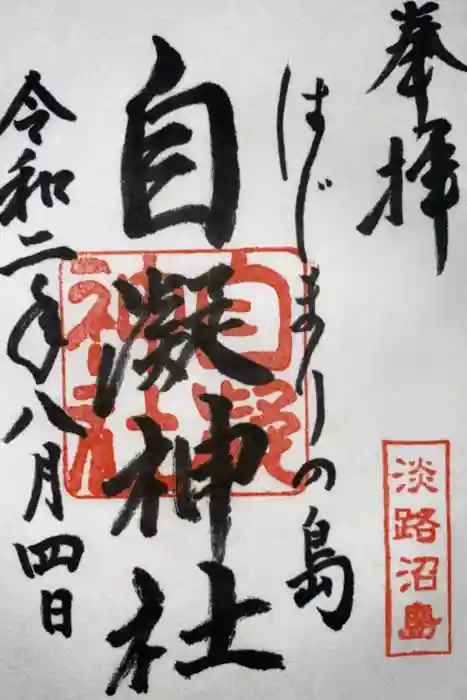 奉拝
淡路沼島
はじまりの島
自凝神社
自凝神社
令和二年八月四日